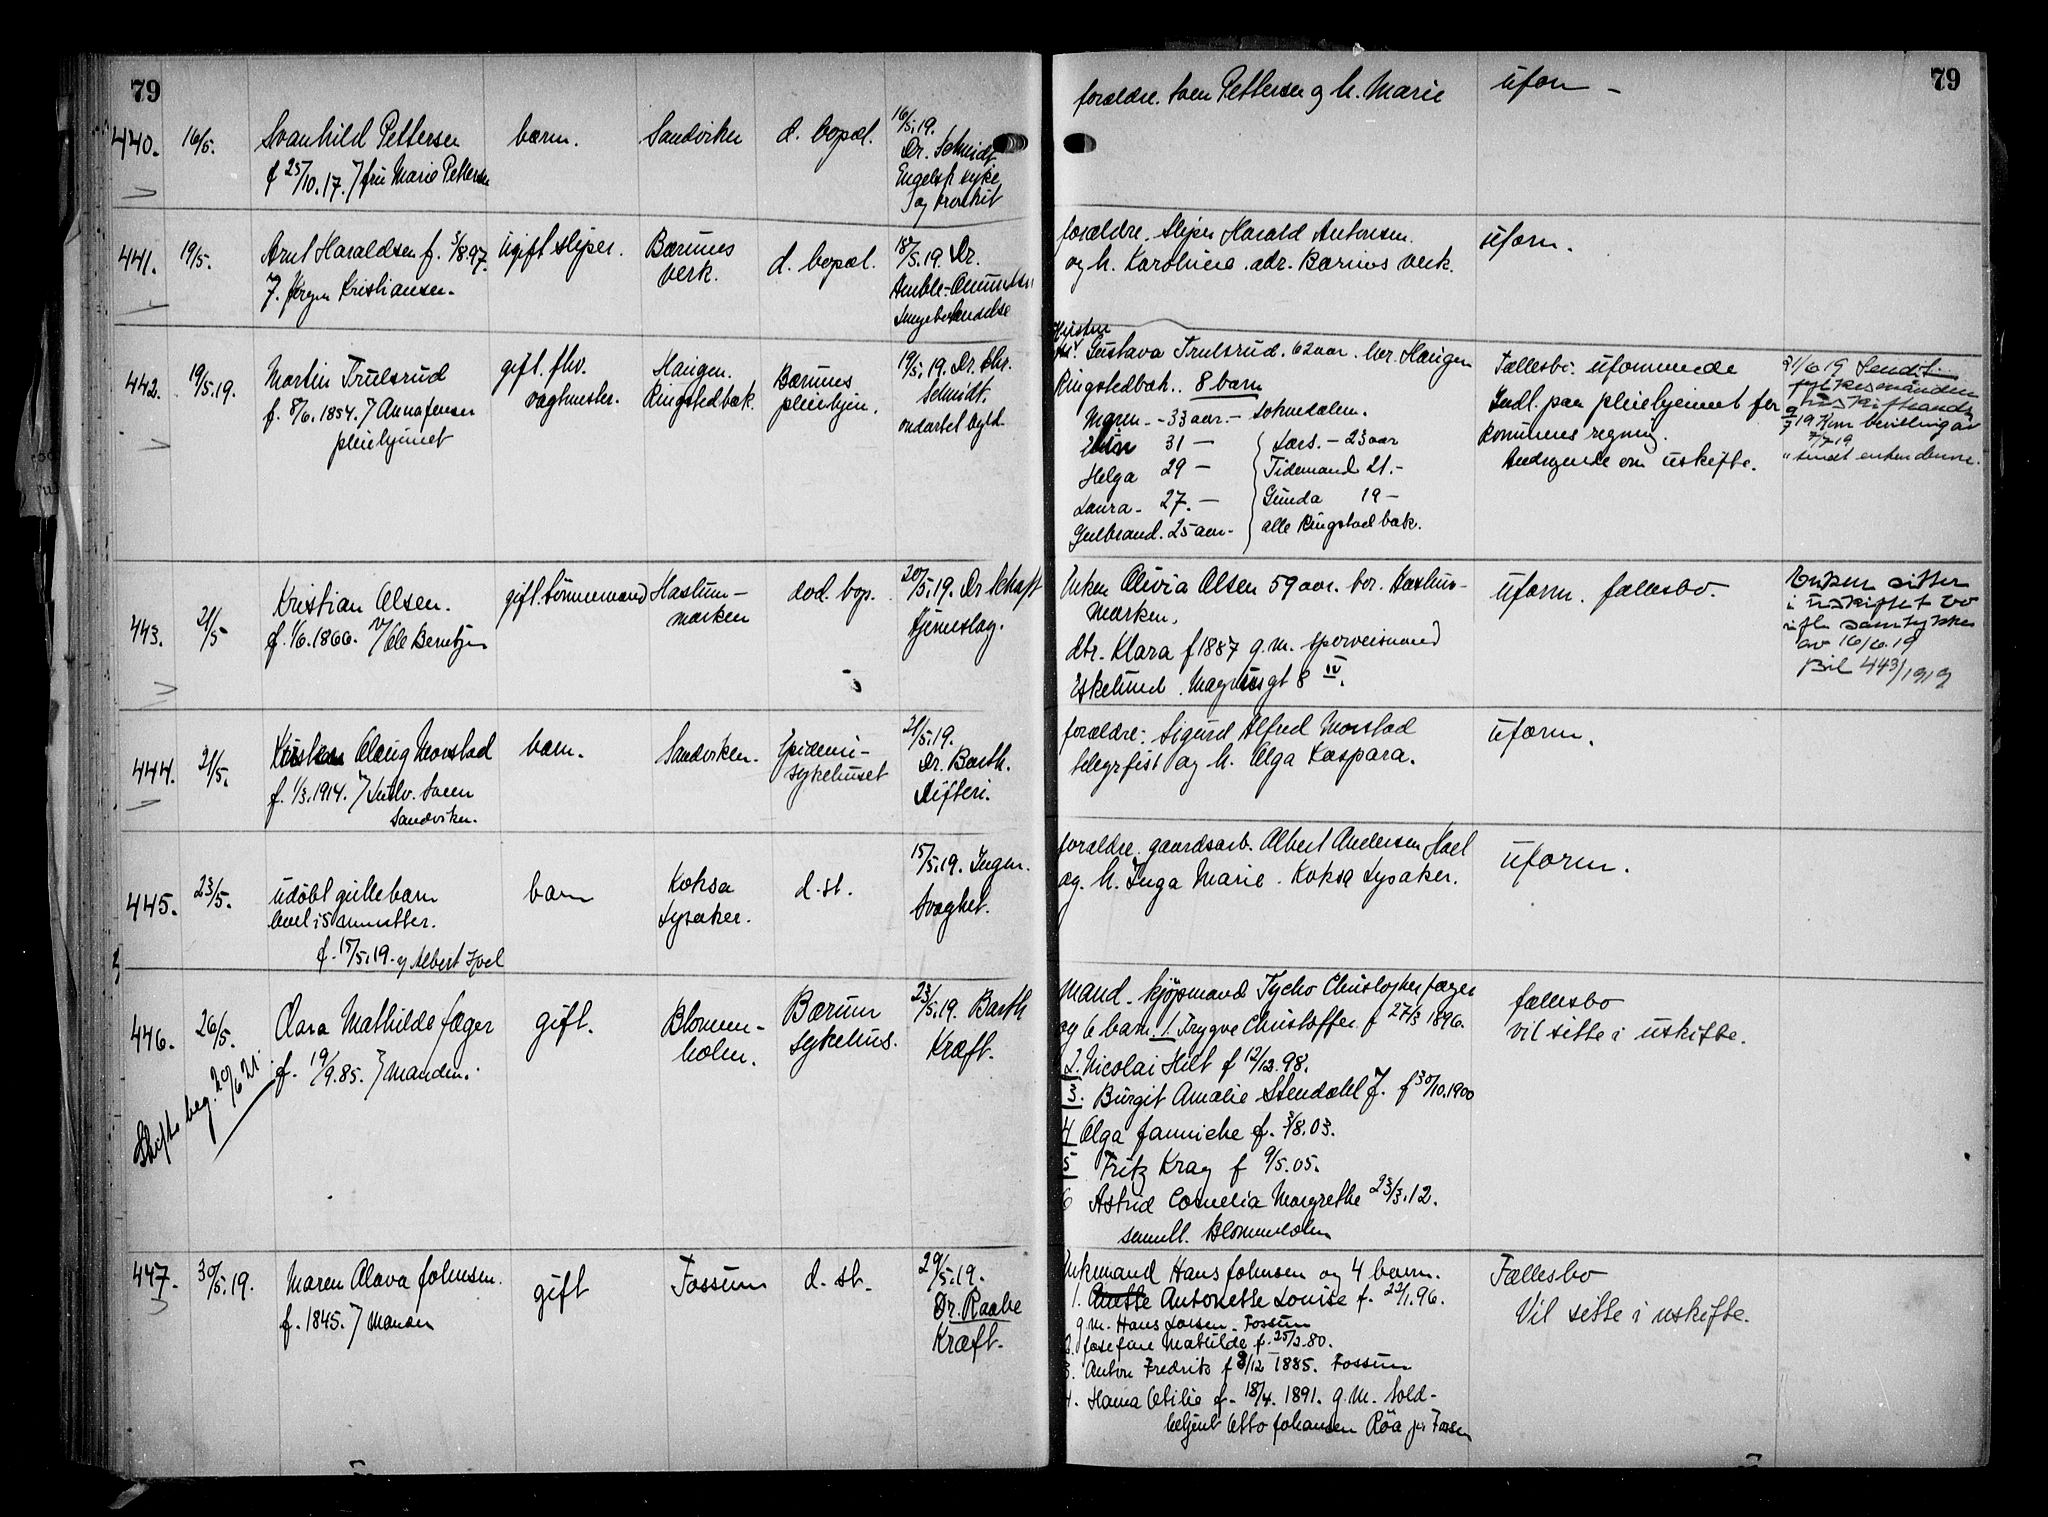 79
79
440. 16/5. Svanhild Pettersen
f 25/10.17. / fru Marie Pettersen
barn.
Sandviken
d. bopæl.
16/5.19.
Dr. Schmidt
Engelsk syke
og bronkit
forældre. Sven Pettersen og h. Marie
uform –
441. 19/5. Arnt Haraldsen f. 3/8.97.
/. Jørgen Kristiansen.
Ugift sliper.
Bærums
verk.
d. bopæl.
18/5.19. Dr.
Amble-Ommundsen
Lungebetændelse
forældre. Sliper Harald Antonsen.
og h. Karoline. adr. Bærums verk.
uform.
442. 19/5.19. Martin Trulsrud
f. 8/6. 1854. / Anna Jensen
pleiehjemmet
gift. fhv.
vagtmester.
Haugen.
Ringstedbæk.
Bærums
pleiehjem.
19/5.19. Dr. Chr.
Schmidt.
ondartet byld.
Hustru
Gustava Trulsrud. 62 aar. bor. Haugen
Ringstedbæk. 8 barn
Maren - 33 aar. - Sokndalen.
31 –
Helga 29 –
Laura - 27. –
Gulbrand. 25 aar -
Lars. - 23 aar
Tidemand 21. -
Gunda 19 -
alle Ringstadbæk.
Fællesbo. uformuende
Indl. paa pleiehjemmet for
kommunes regning.
Andragende om uskifte.
21/6 19 Sendt
fylkesmanden
9/7 19 Kom bevilling av
7/7 19
" sendt enken denne.
443. 21/5 Kristian Olsen.
f. 1/6. 1866. / Ole Berntzen
gift. tømmermand
Haslum-
marken
død. bop.
20/5.19. Dr Schaft
Hjerneslag.
Enken Olivia Olsen 59 aar. bor. Haslum-
marken.
dtr. Klara f 1887 g.m. sporveismand
Eskelund. Magnusgt 8 IV.
uform. fællesbo.
Enken sitter
i uskiftet bo
ifl. samtykke
av 16/6.19
Bil 443/1919
444. 21/5. Olaug Monstad
f. 1/3.1914. / Sandviken.
barn.
Sandviken.
Epidemi-
sykehuset
21/5.19.
Dr. Barth.
Difteri.
forældre: Sigurd Alfred Monstad
telegrfist og h. Olga Kaspara.
uform.
445. 23/5. udøbt guttebarn
levet i 5 minutter.
f. 15/5.19. / Albert Hoel
barn
Koksa
Lysaker.
d. st.
15/5.19. Ingen.
Svaghet.
forældre. gaardsarb. Albert Andersen Hoel
og. h. Inga Marie. Koksa Lysaker.
uform.
446. 26/5. Clara Mathilde Jæger
f. 19/9.85. / Manden.
Skifte beg. 20/6 21.
gift.
Blommen-
holm.
Bærum
sykehus.
23/5.19. Barth
Kræft.
Mand. kjøpmand Tycho Christopher Jæger
og 6 barn. 1. Trygve Christoffer f 27/3 1896.
2. Nicolai Hilt f 12/12.98.
3. Burgit Amalie Stendahl J. f 30/10.1900
4 Olga Fanniche f. 3/8.03.
5 Fritz Krag f 9/5.05.
6 Astrid Cornelia Margrethe 23/3.12.
samtl. Blommenholm
fællesbo
vil sitte i uskifte.
447. 30/5.19. Maren Olava Johnsen.
f. 1845. / Manden
gift
Fossum
d. st.
29/5.19.
Dr. Raabe
Kræft.
Enkemand Hans Johnsen og 4 barn.
1. Anette Antonette Louise f. 22/1.96.
g.m. Hans Larsen. Fossum
2. Josefine Mathilde f. 25/2.80.
3. Anton Fredrik f 8/12 1885. Fossum
4. Hanna Otilie f. 18/4. 1891. g.m. told-
betjent Otto Johansen Röa pr Fossum
Fællesbo
Vil sitte i uskifte.